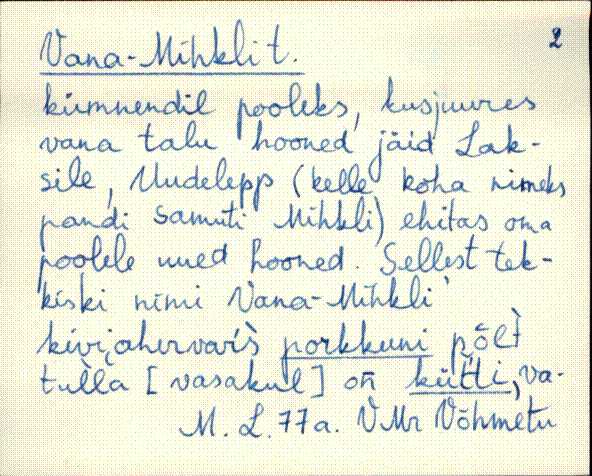 Vana-Mihkli t. 2
kümnendil pooleks, kusjuures
vana talu hooned jäid Lak-
sile, Uudelepp (kelle koha nimeks
pandi samuti Mihkli) ehitas oma
poolele uued hooned. Sellest tek-
kiski nimi Vana-Mihkli
kiviahervarìs porkkuni põlt̀
tul̀la [vasakul] on̄ kütti, va-
M. L. 77a. VMr Võhmetu